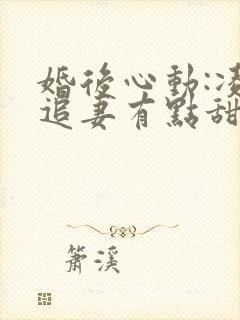 婚後心動:凌
追妻有點甜
簫溪